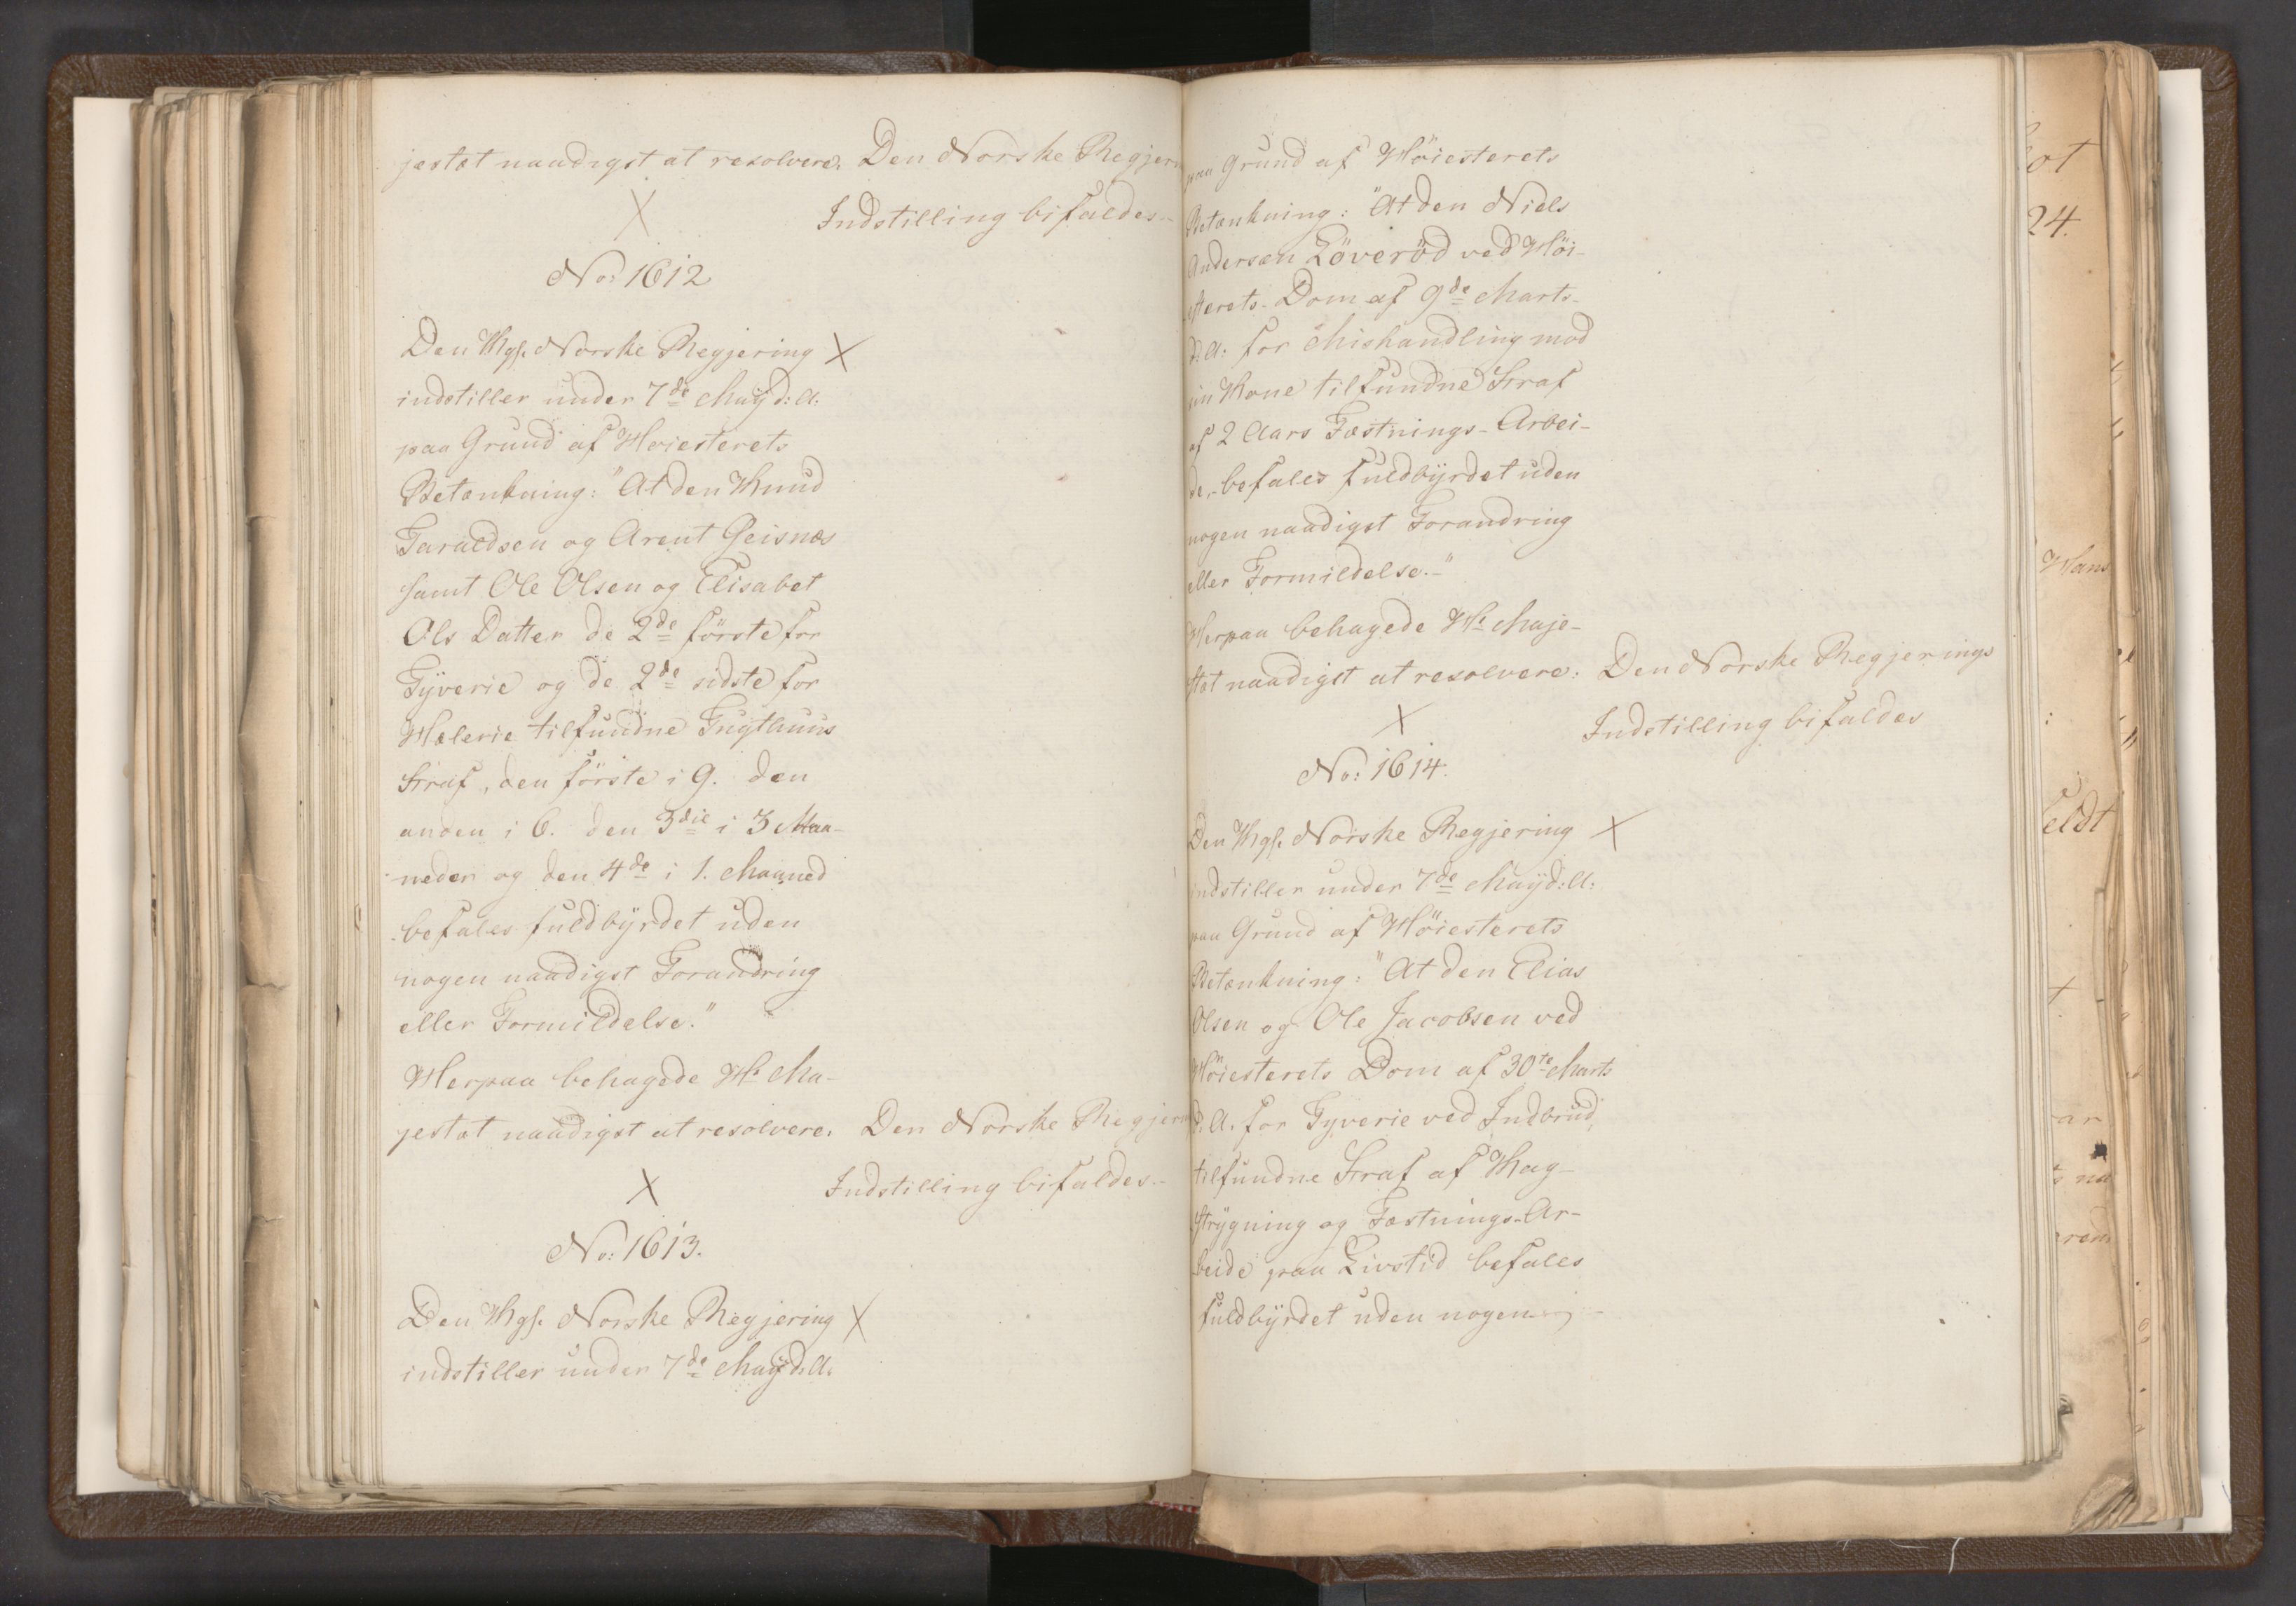 jestæt naadigst at resolvere. Den Norske Regjer
Indstilling bifaldes.-
No: 1612
Den Kgl. Norske Regjering
indstiller under 7de May d: A:
paa Grund af Høiesterets
Betænkning: "At den Knud
Taraldsen og Arent Geisnæs
samt Ole Olsen og Elisabet
Ols Datter de 2de förste for
Tÿverie og de 2de sidste for
Hæleri tilfundne Tugthuus
Straf, den förste i 9. den
anden i 6. den 3die i 3 Maa-
neder og den 4de i 1. Maaned
befales fuldbÿrdet uden
nogen naadigst Forandring
eller Formildelse."
Herpaa behagede Hs Ma-
jestæt naadigst at resolvere. Den Norske Regjer
Indstilling bifaldes.-
No: 1613.
Den Kgl. Norske Regjering
indstiller under 7de May d: A:
paa Grund af Höiesterets
Betænkning: "At den Niels
Andersen Löveröd ved Höi-
esterets Dom af 9de Marts
d: A: for Mishandling mod
sin Kone tilfundne Straf
af 2 Aars Fæstnings-Arbei-
de, befales fuldbÿrdet uden
nogen naadigst Forandring
eller Formildelse.-"
Herpaa behagede Hs Maje-
stæt naadigst at resolvere: Den Norske Regjerings
Indstilling bifaldes
No: 1614.
Den Kgl. Norske Regjering
indstiller under 7de Maÿ d: A:
paa Grund af Höiesterets
Betænkning: "At den Elias
Olsen og Ole Jacobsen ved
Höiesterets Dom af 30te Marts
d. A. for Tyverie ved Indbrud,
tilfundne Straf af Kag-
strÿgning og Fæstnings-Ar-
beide paa Livstid befales
fuldbÿrdet uden nogen
24.
Hans